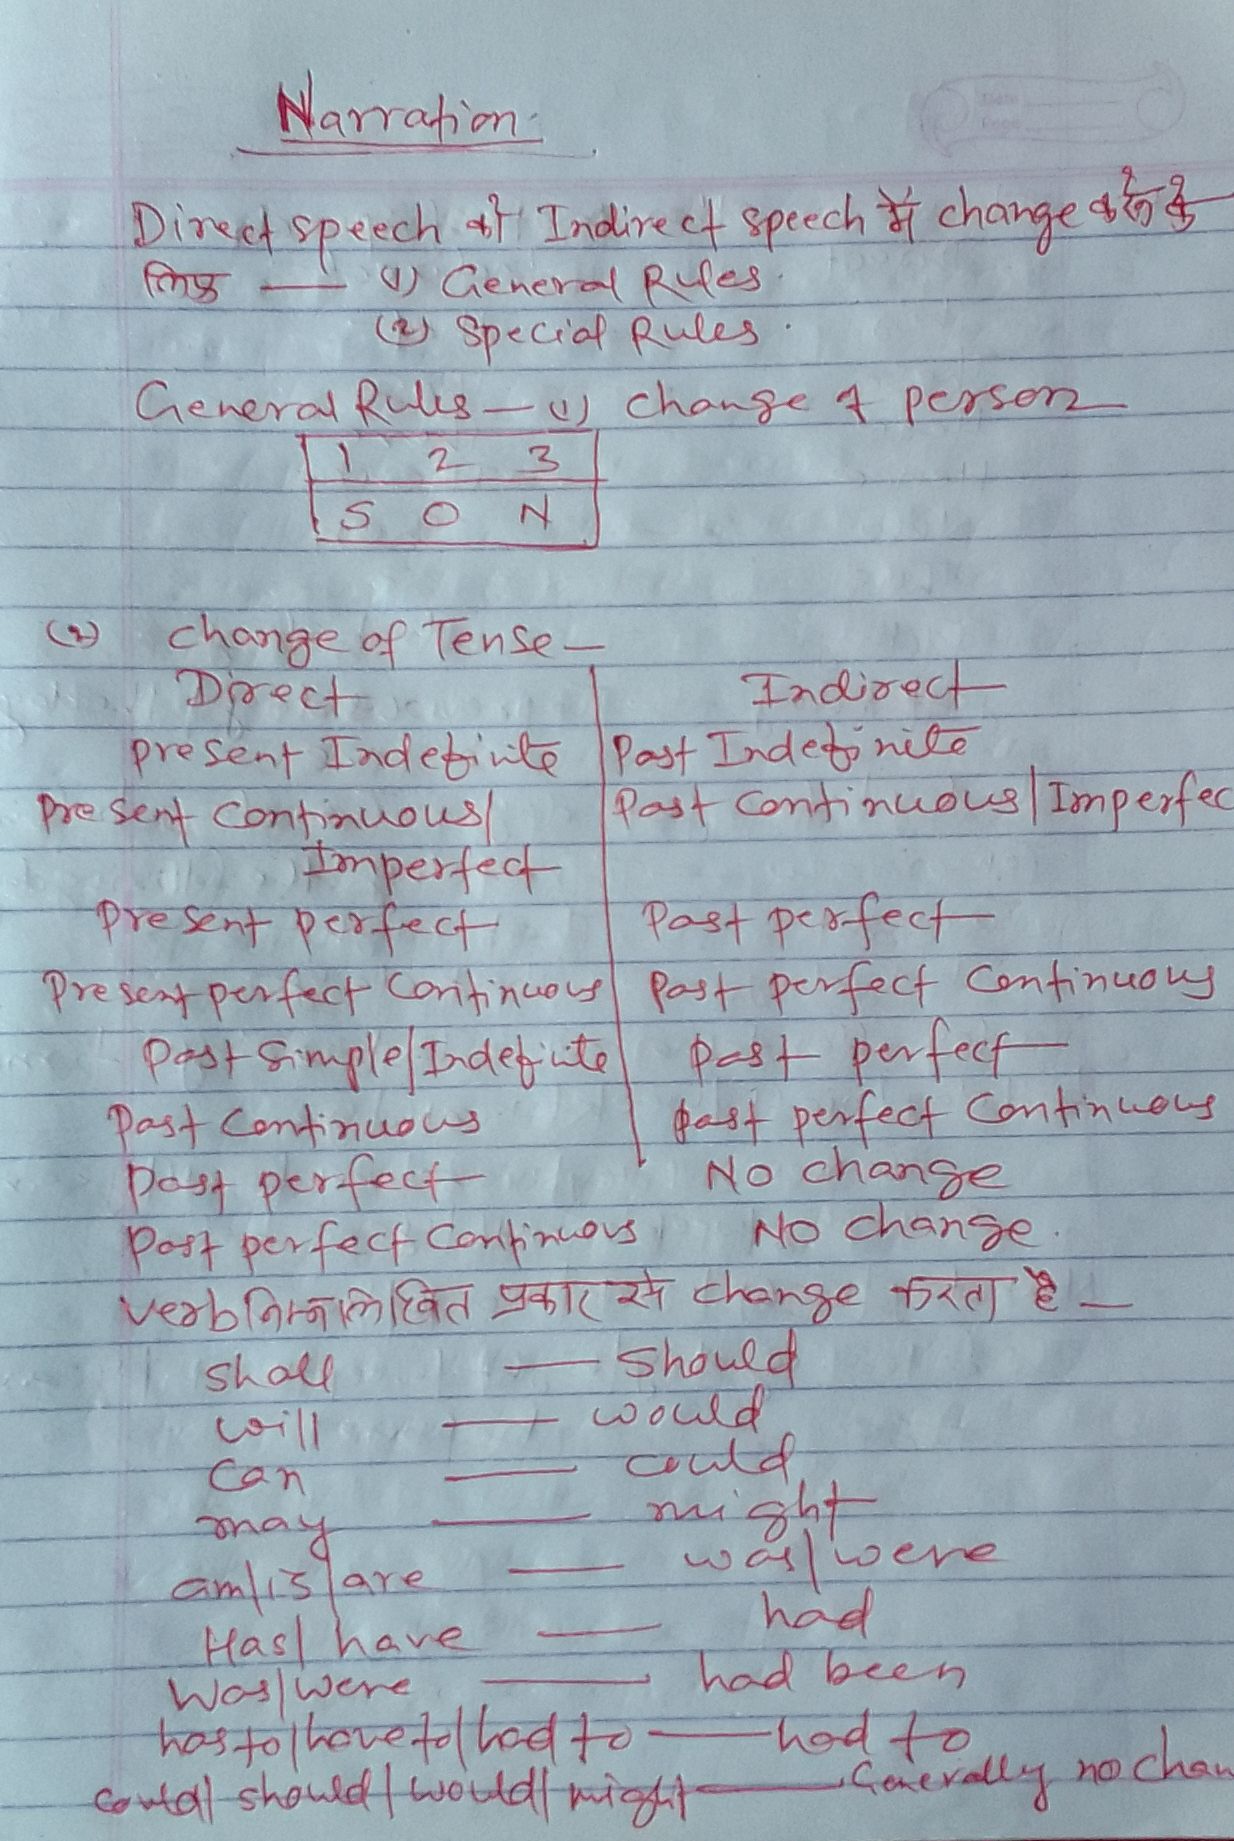 Narration
Direct speech को Indirect speech में change करने के
लिए — (1) General Rules.
(2) Special Rules.
General Rules — (1) change of person
1 2 3
S O N
(2) change of Tense —
Direct Indirect
Present Indefinite Past Indefinite
Present Continuous/ Past Continuous/Imperfec
Imperfect
Present perfect Past perfect
Present perfect Continuous Past perfect Continuous
Past Simple/Indefinite Past perfect
Past Continuous past perfect Continuous
Past perfect No change
Past perfect Continuous No change.
verb निम्नलिखित प्रकार से change करता है —
shall — should
will — would
can — could
may — might
am/is/are — was/were
Has/have — had
Was/were — had been
has to/have to/had to — had to
could/should/would/might — Generally no chan